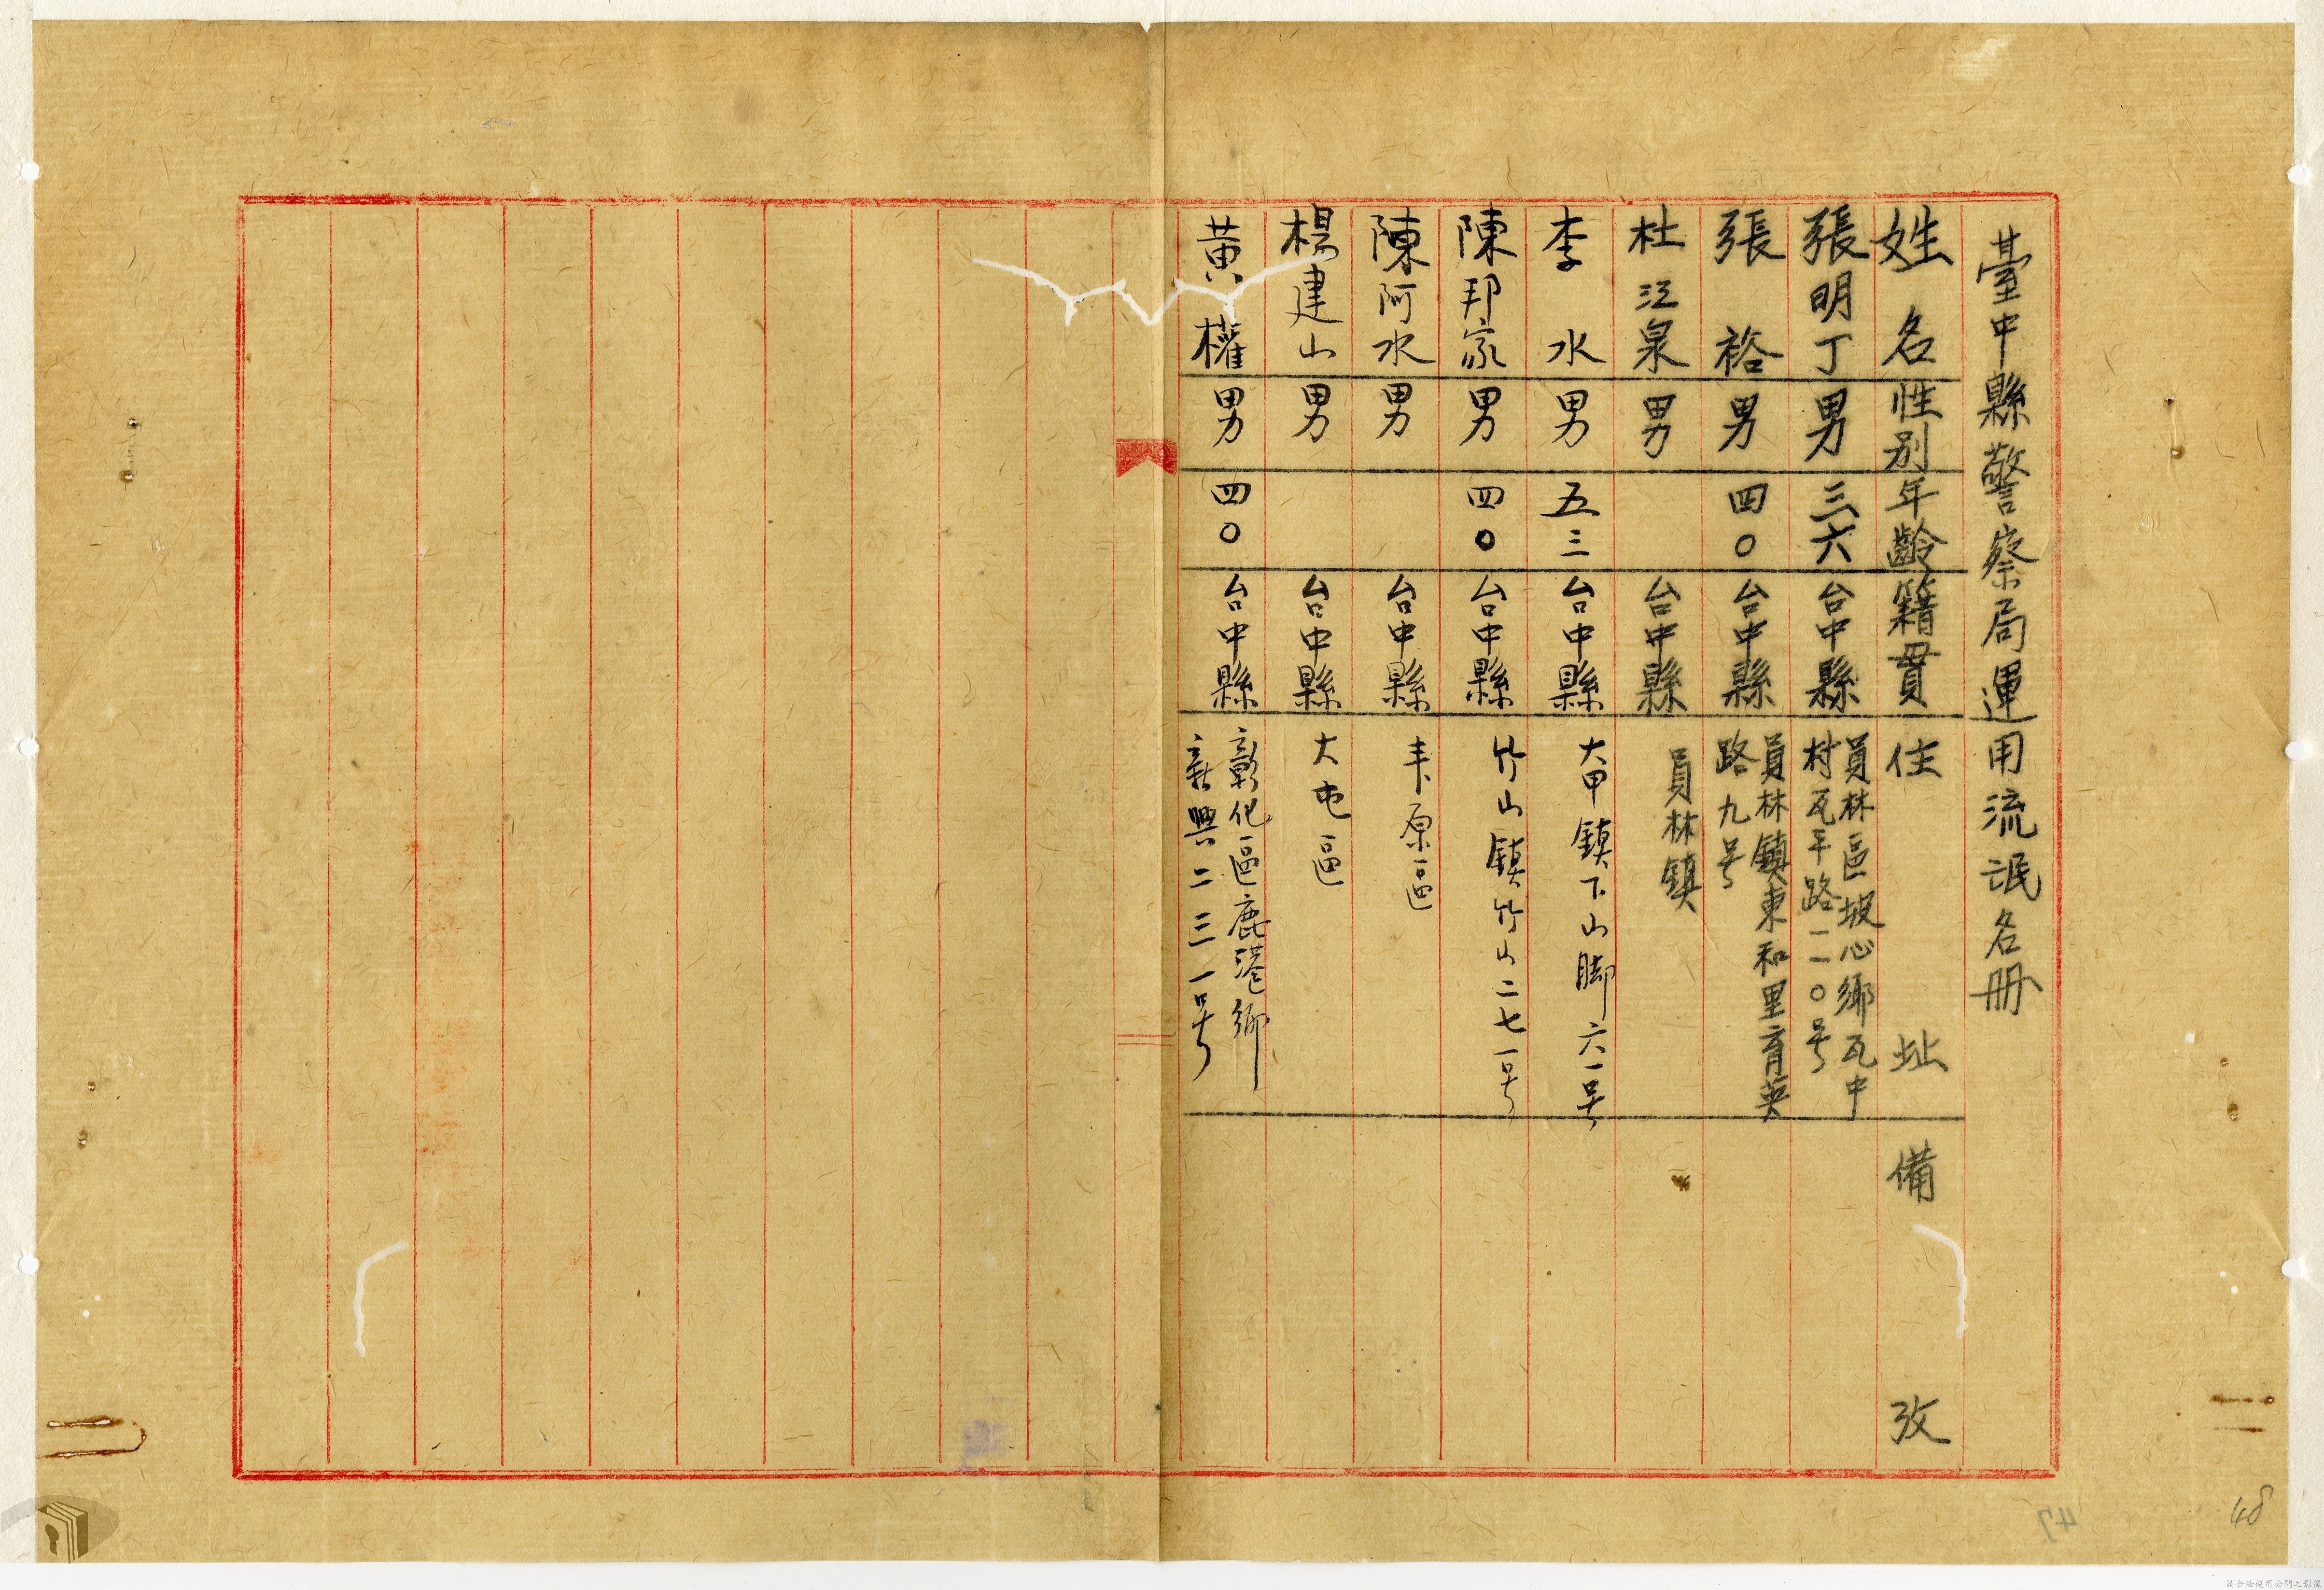 臺中縣警察局運用流氓名冊
姓名 性別 年齡 籍貫 住址 備攷
張明丁 男 三六 台中縣 員林區坡心鄉瓦中
村瓦平路一一〇号
張裕 男 四〇 台中縣 員林鎮東和里育英
路九号
杜江泉 男 台中縣 員林鎮
李水 男 五三 台中縣 大甲鎮下山脚六一号
陳邦家 男 四〇 台中縣 竹山鎮竹山二七一号
陳阿水 男 台中縣 丰原區
楊建山 男 台中縣 大屯區
黃權 男 四〇 台中縣 彰化區鹿港鄉
新興二三一号
48
47
請合法使用公開之影像